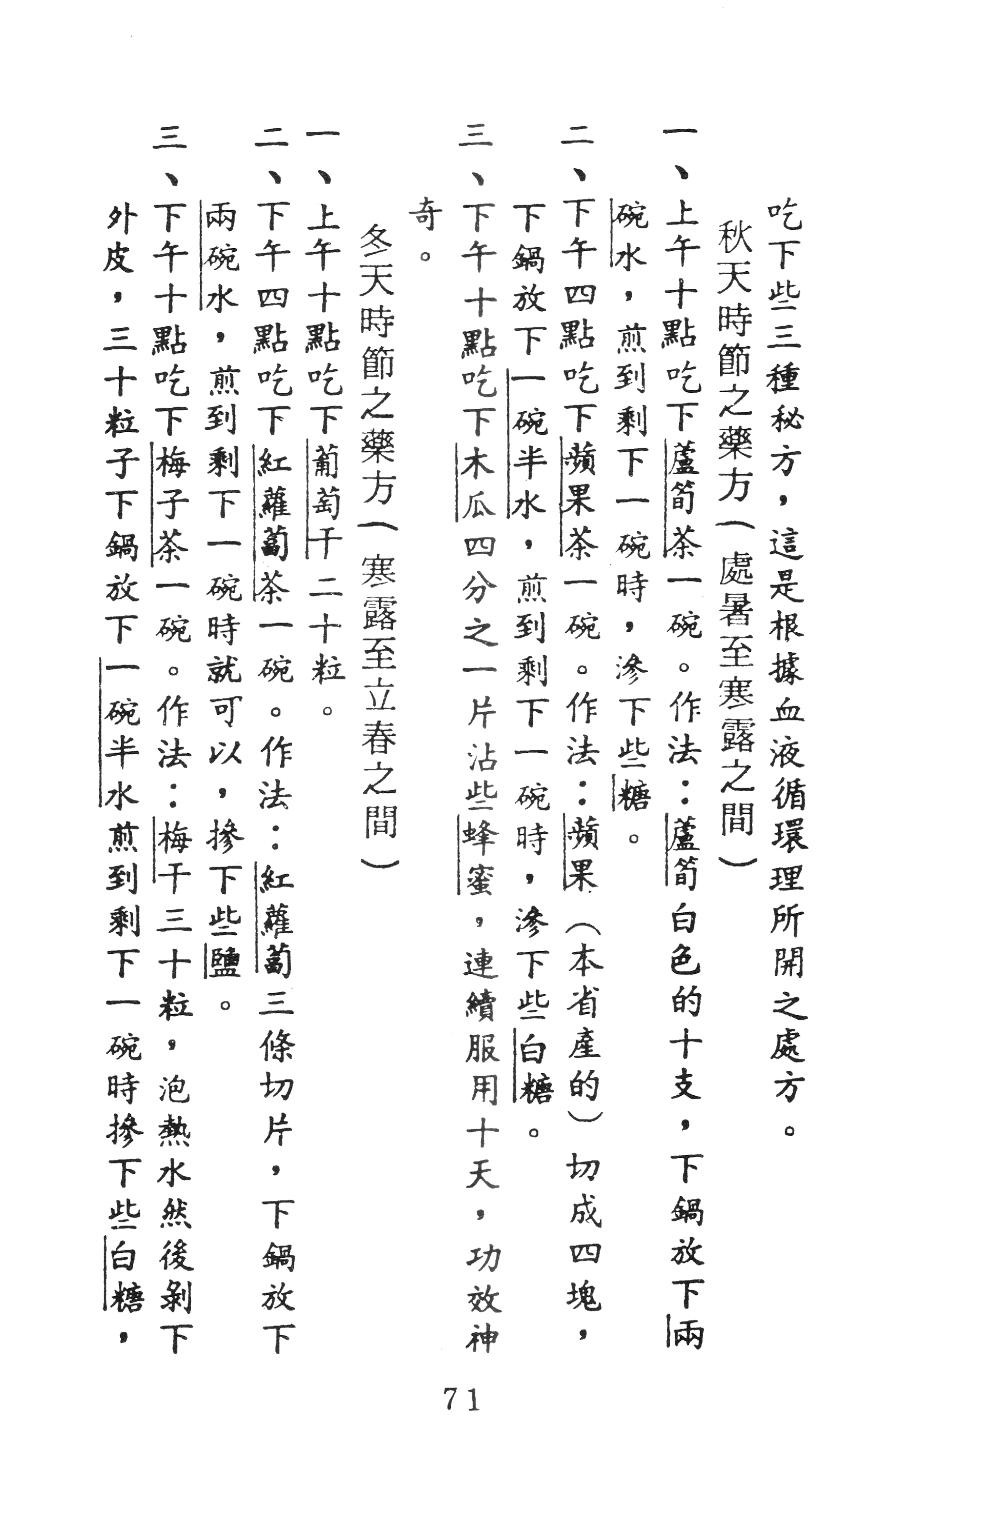 吃下些三種秘方，這是根據血液循環理所開之處方。
秋天時節之藥方（處暑至寒露之間）
一、上午十點吃下蘆筍茶一碗。作法：蘆筍白色的十支，下鍋放下兩
碗水，煎到剩下一碗時，滲下些糖。
二、下午四點吃下蘋果茶一碗。作法：蘋果（本省產的）切成四塊，
下鍋放下一碗半水，煎到剩下一碗時，滲下些白糖。
三、下午十點吃下木瓜四分之一片沾些蜂蜜，連續服用十天，功效神
奇。
冬天時節之藥方（寒露至立春之間）
一、上午十點吃下葡萄干二十粒。
二、下午四點吃下紅蘿蔔茶一碗。作法：紅蘿蔔三條切片，下鍋放下
兩碗水，煎到剩下一碗時就可以，摻下些鹽。
三、下午十點吃下梅子茶一碗。作法：梅干三十粒，泡熱水然後剝下
外皮，三十粒子下鍋放下一碗半水煎到剩下一碗時摻下些白糖，
71